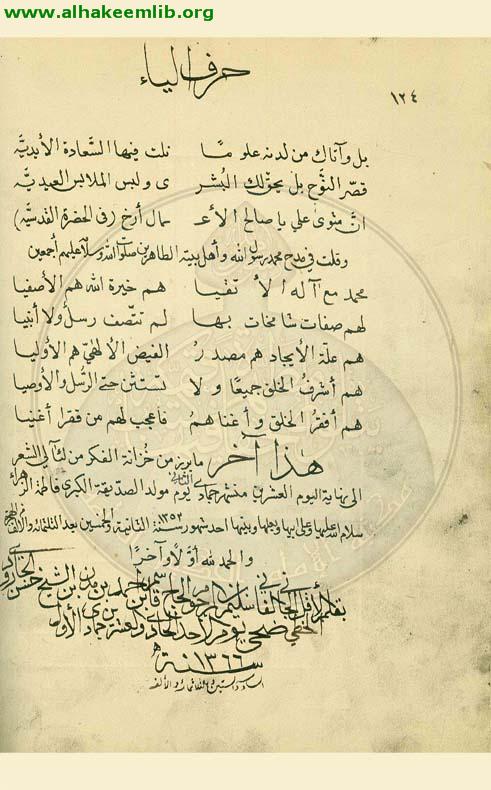 www.alhakeemlib.org
حرف الياء
١٢٤
بل وآتاك من لدنه علوما نلت فيها السّعادة الأبديَّه
قصّر النّوح بل يحقّ لك البُشرى ولبس الملابس العيديَّه
انَّ مثوى علي يا صالح الأعمال أرخ (في الحضرة القدسيَّه)
وقلت في مدح محمد رسول الله وأهل بيته الطاهرين صلوات الله وسلامه عليهم أجمعين
محمد مع آله الأتقيا هم خيرة الله هم الأصفيا
لهم صفات شامخات بها لم تتّصف رسلٌ ولا أنبيا
هم علّة الأيجاد هم مصدرُ الفيض الألهيّ هم الأوليا
هم أشرفُ الخلق جميعًا ولا تستثن حتى الرُّسل والأوصيا
هم أفقرُ الخلق وأغناهمُ فاعجب لهم من فقرا أغنيا
هذا آخر ما برز من خزانة الفكر من لئآلي الشعر
الى نهاية اليوم العشرين من شهر جمادى الثاني يوم مولد الصديقة الكبرى فاطمة الزهراء
سلام الله عليها وعلى ابيها وبعلها وبنيها احد شهور سنة ١٣٥٢ الثانية والخمسين بعد الثلثمائة والألف
والحمد لله أوّلاً وآخرًا
بقلم الأقل
ضحى يوم الأحد جمادى الأولى
سنة ١٣٦٦ه
السادسة والستين والثلاثمائة والألف